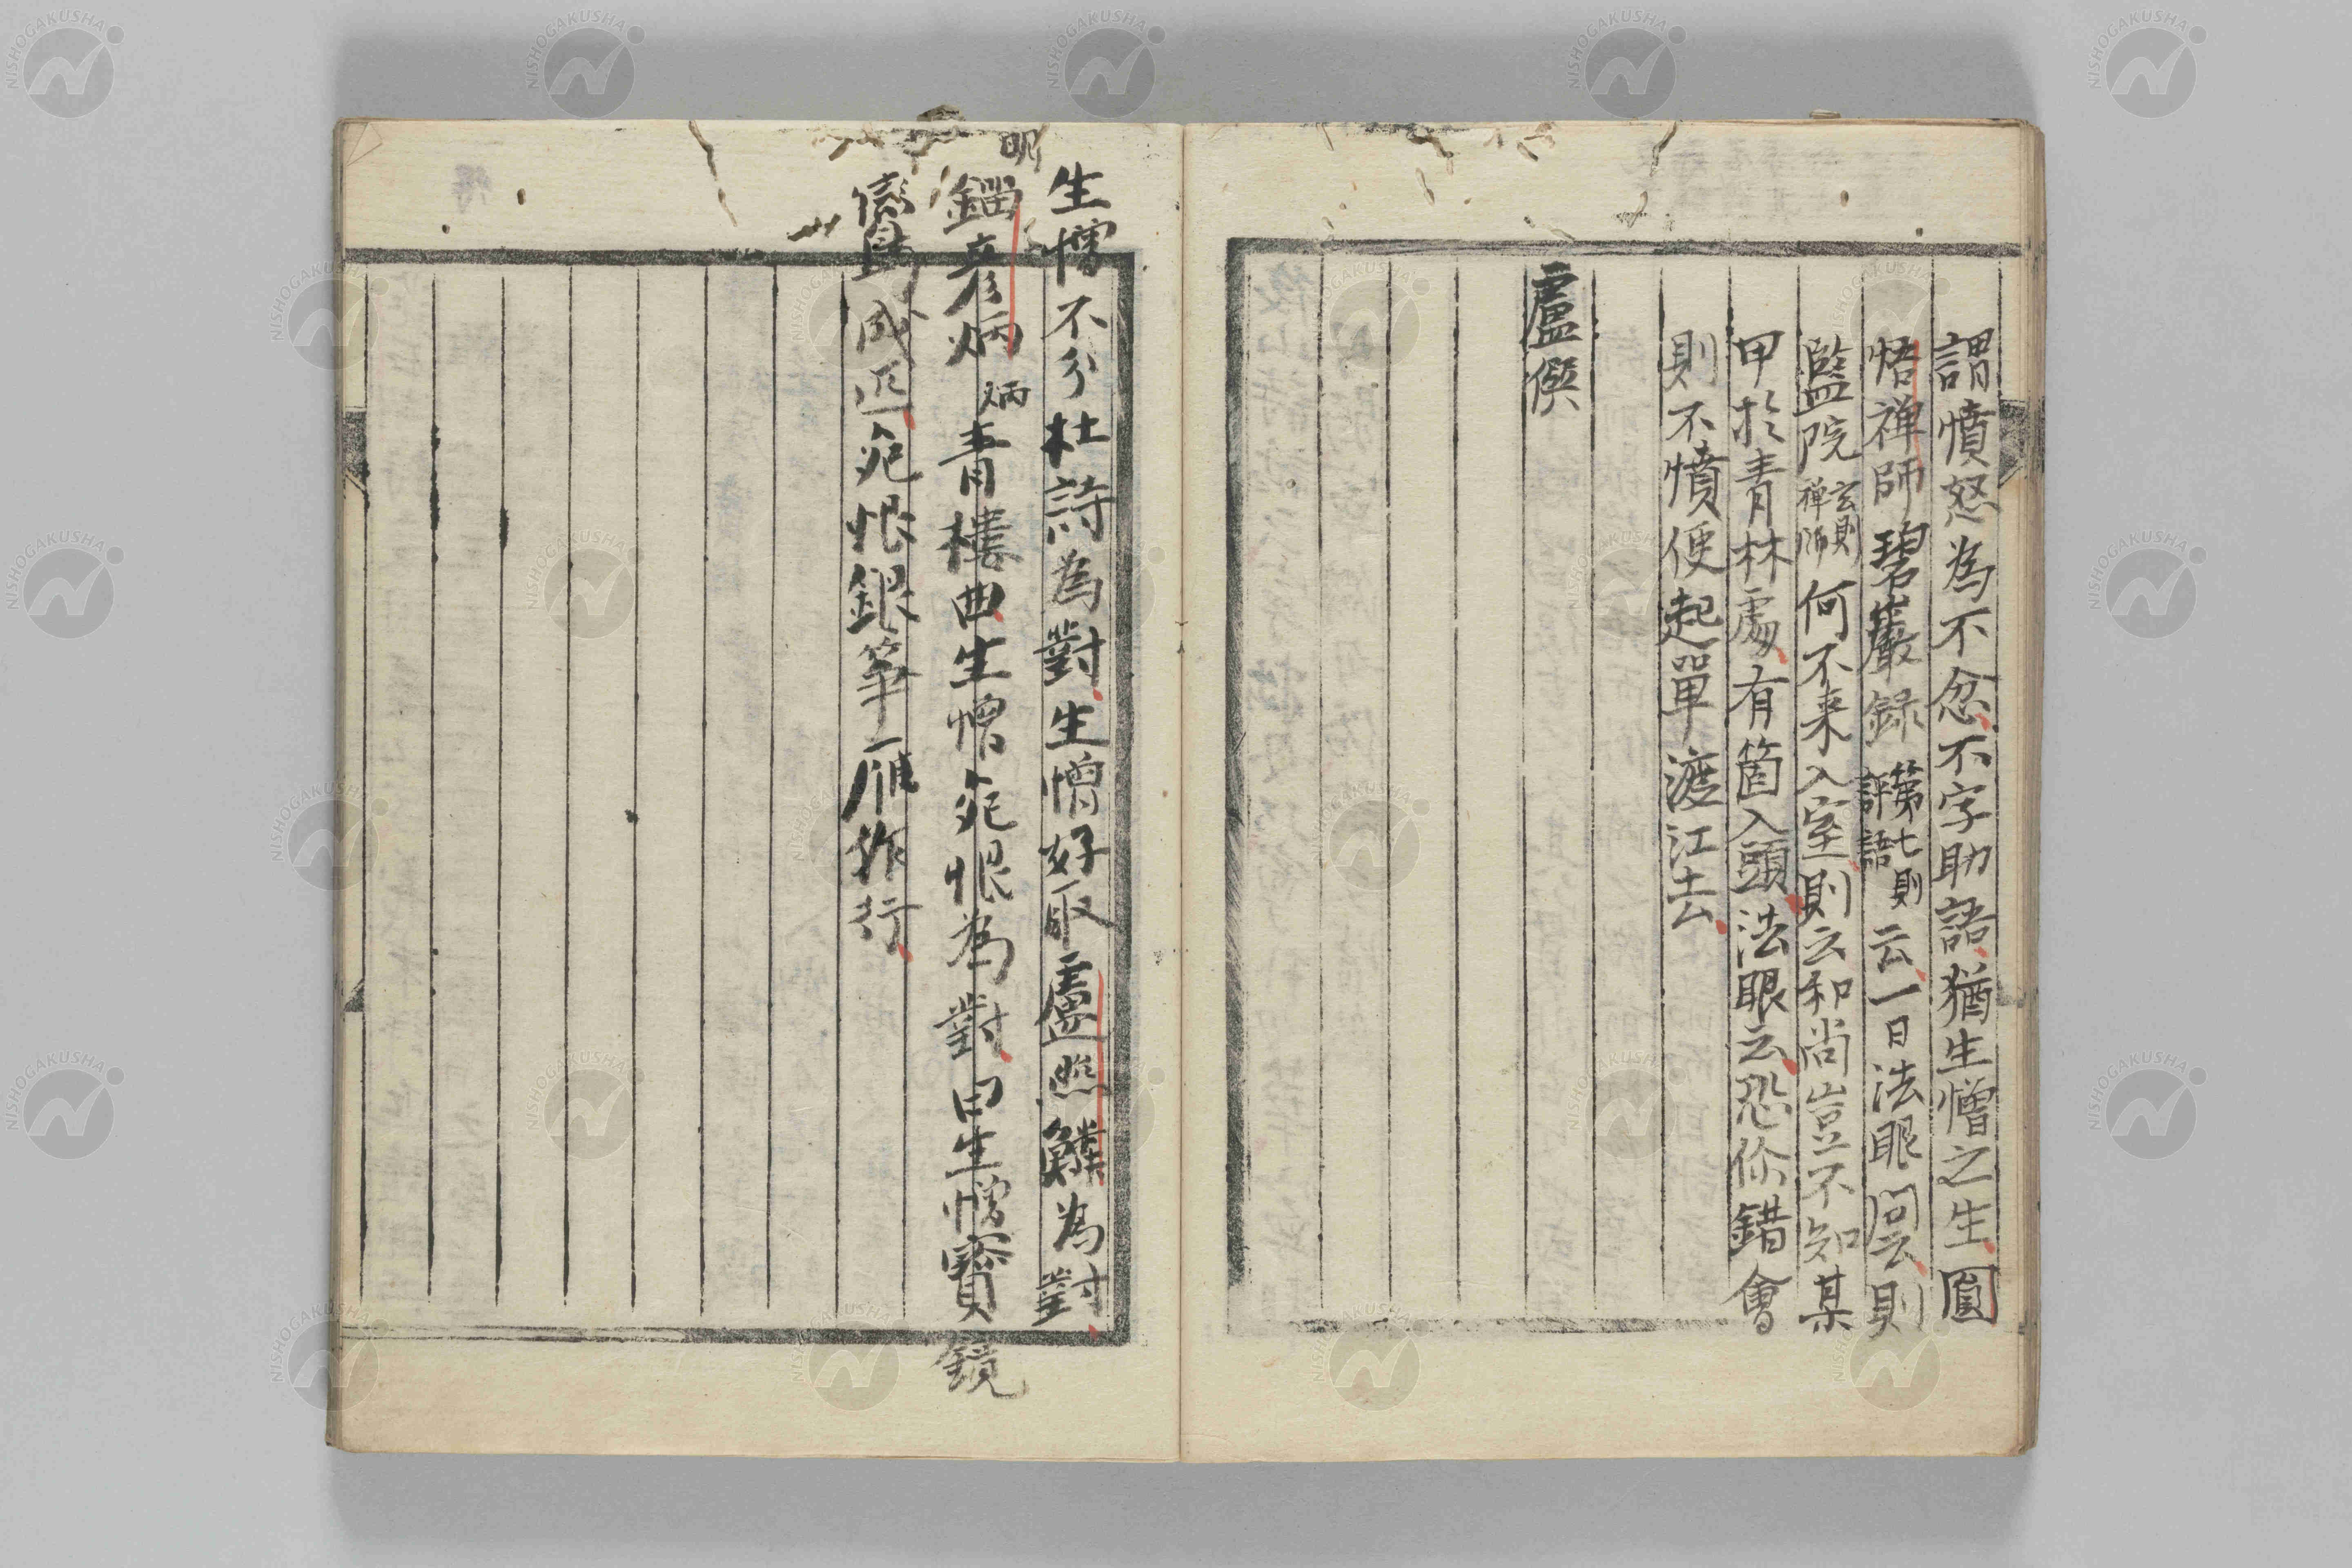 謂憤怒為不忿不字助語猶生憎之生圜
悟禅師碧巖録第七則評語云一日法眼問云則
監院玄則禅師何不来入室則云和尚豈不知某
甲於青林處有箇入頭法眼云恐你錯會
則不憤便起單渡江去
盧僎
生憎不分杜詩為對生憎好取盧照鄰為對
明
彦炳青樓曲生憎死恨為對曰生憎寶鏡
炳
鸞成匹死恨銀筝雁作行
NISHOGAKUSHA